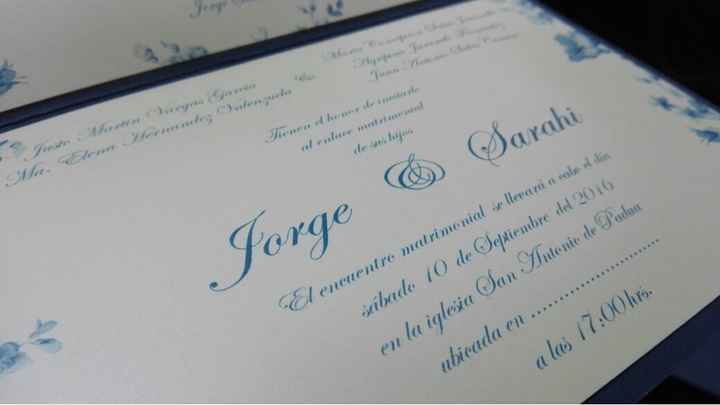 Jorge
Justo Martin Vargas Garcia
Ma. Elena Hernandez Valenzuela
&
Tienen el honor de invitarle
al enlace matrimonial
de sus hijos
Jorge & Sarahi
El encuentro matrimonial se llevará a cabo el día
sábado 10 de Septiembre del 2016
en la iglesia San Antonio de Padua
ubicada en ..............................
a las 17:00 hrs.